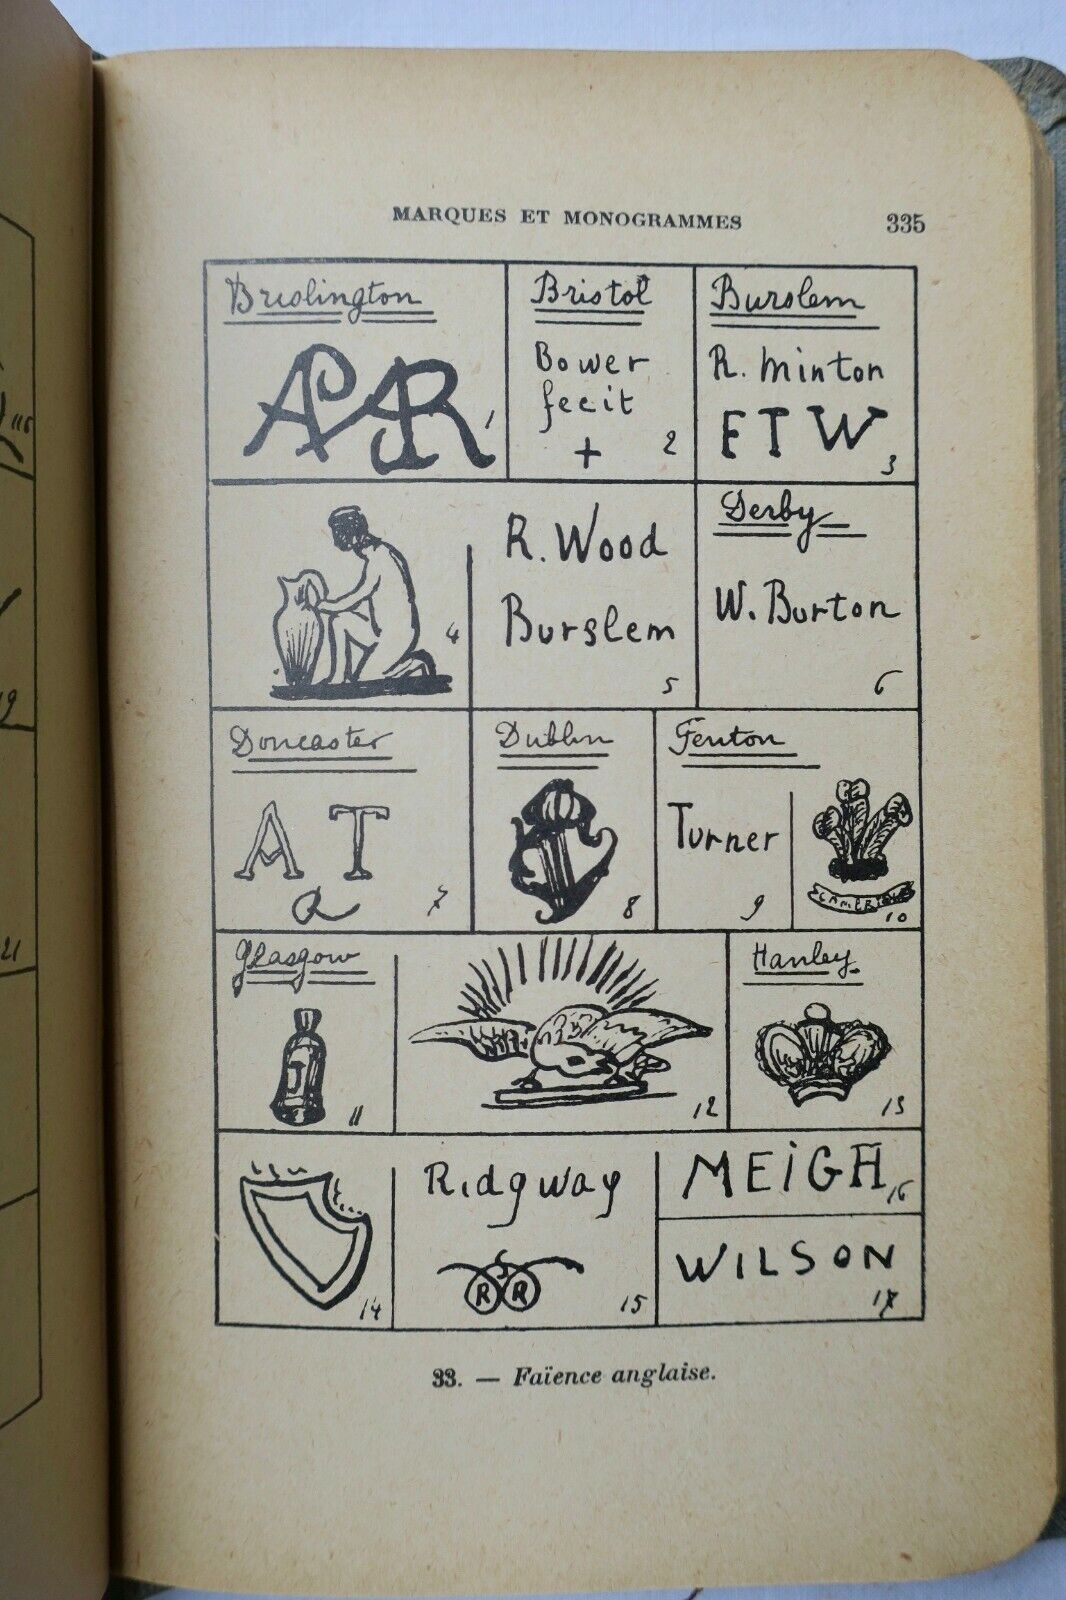 MARQUES ET MONOGRAMMES 335
Brislington
APR 1
Bristol
Bower
fecit
+ 2
Burslem
R. Minton
ETW 3
4
R. Wood
Burslem
5
Derby
W. Burton
6
Doncaster
A T
Q 7
Dublin
8
Fenton
Turner
9
10
Glasgow
11
12
Hanley
13
14
Ridgway
J
R R 15
MEIGH 16
WILSON
17
33. — Faïence anglaise.
116
19
21